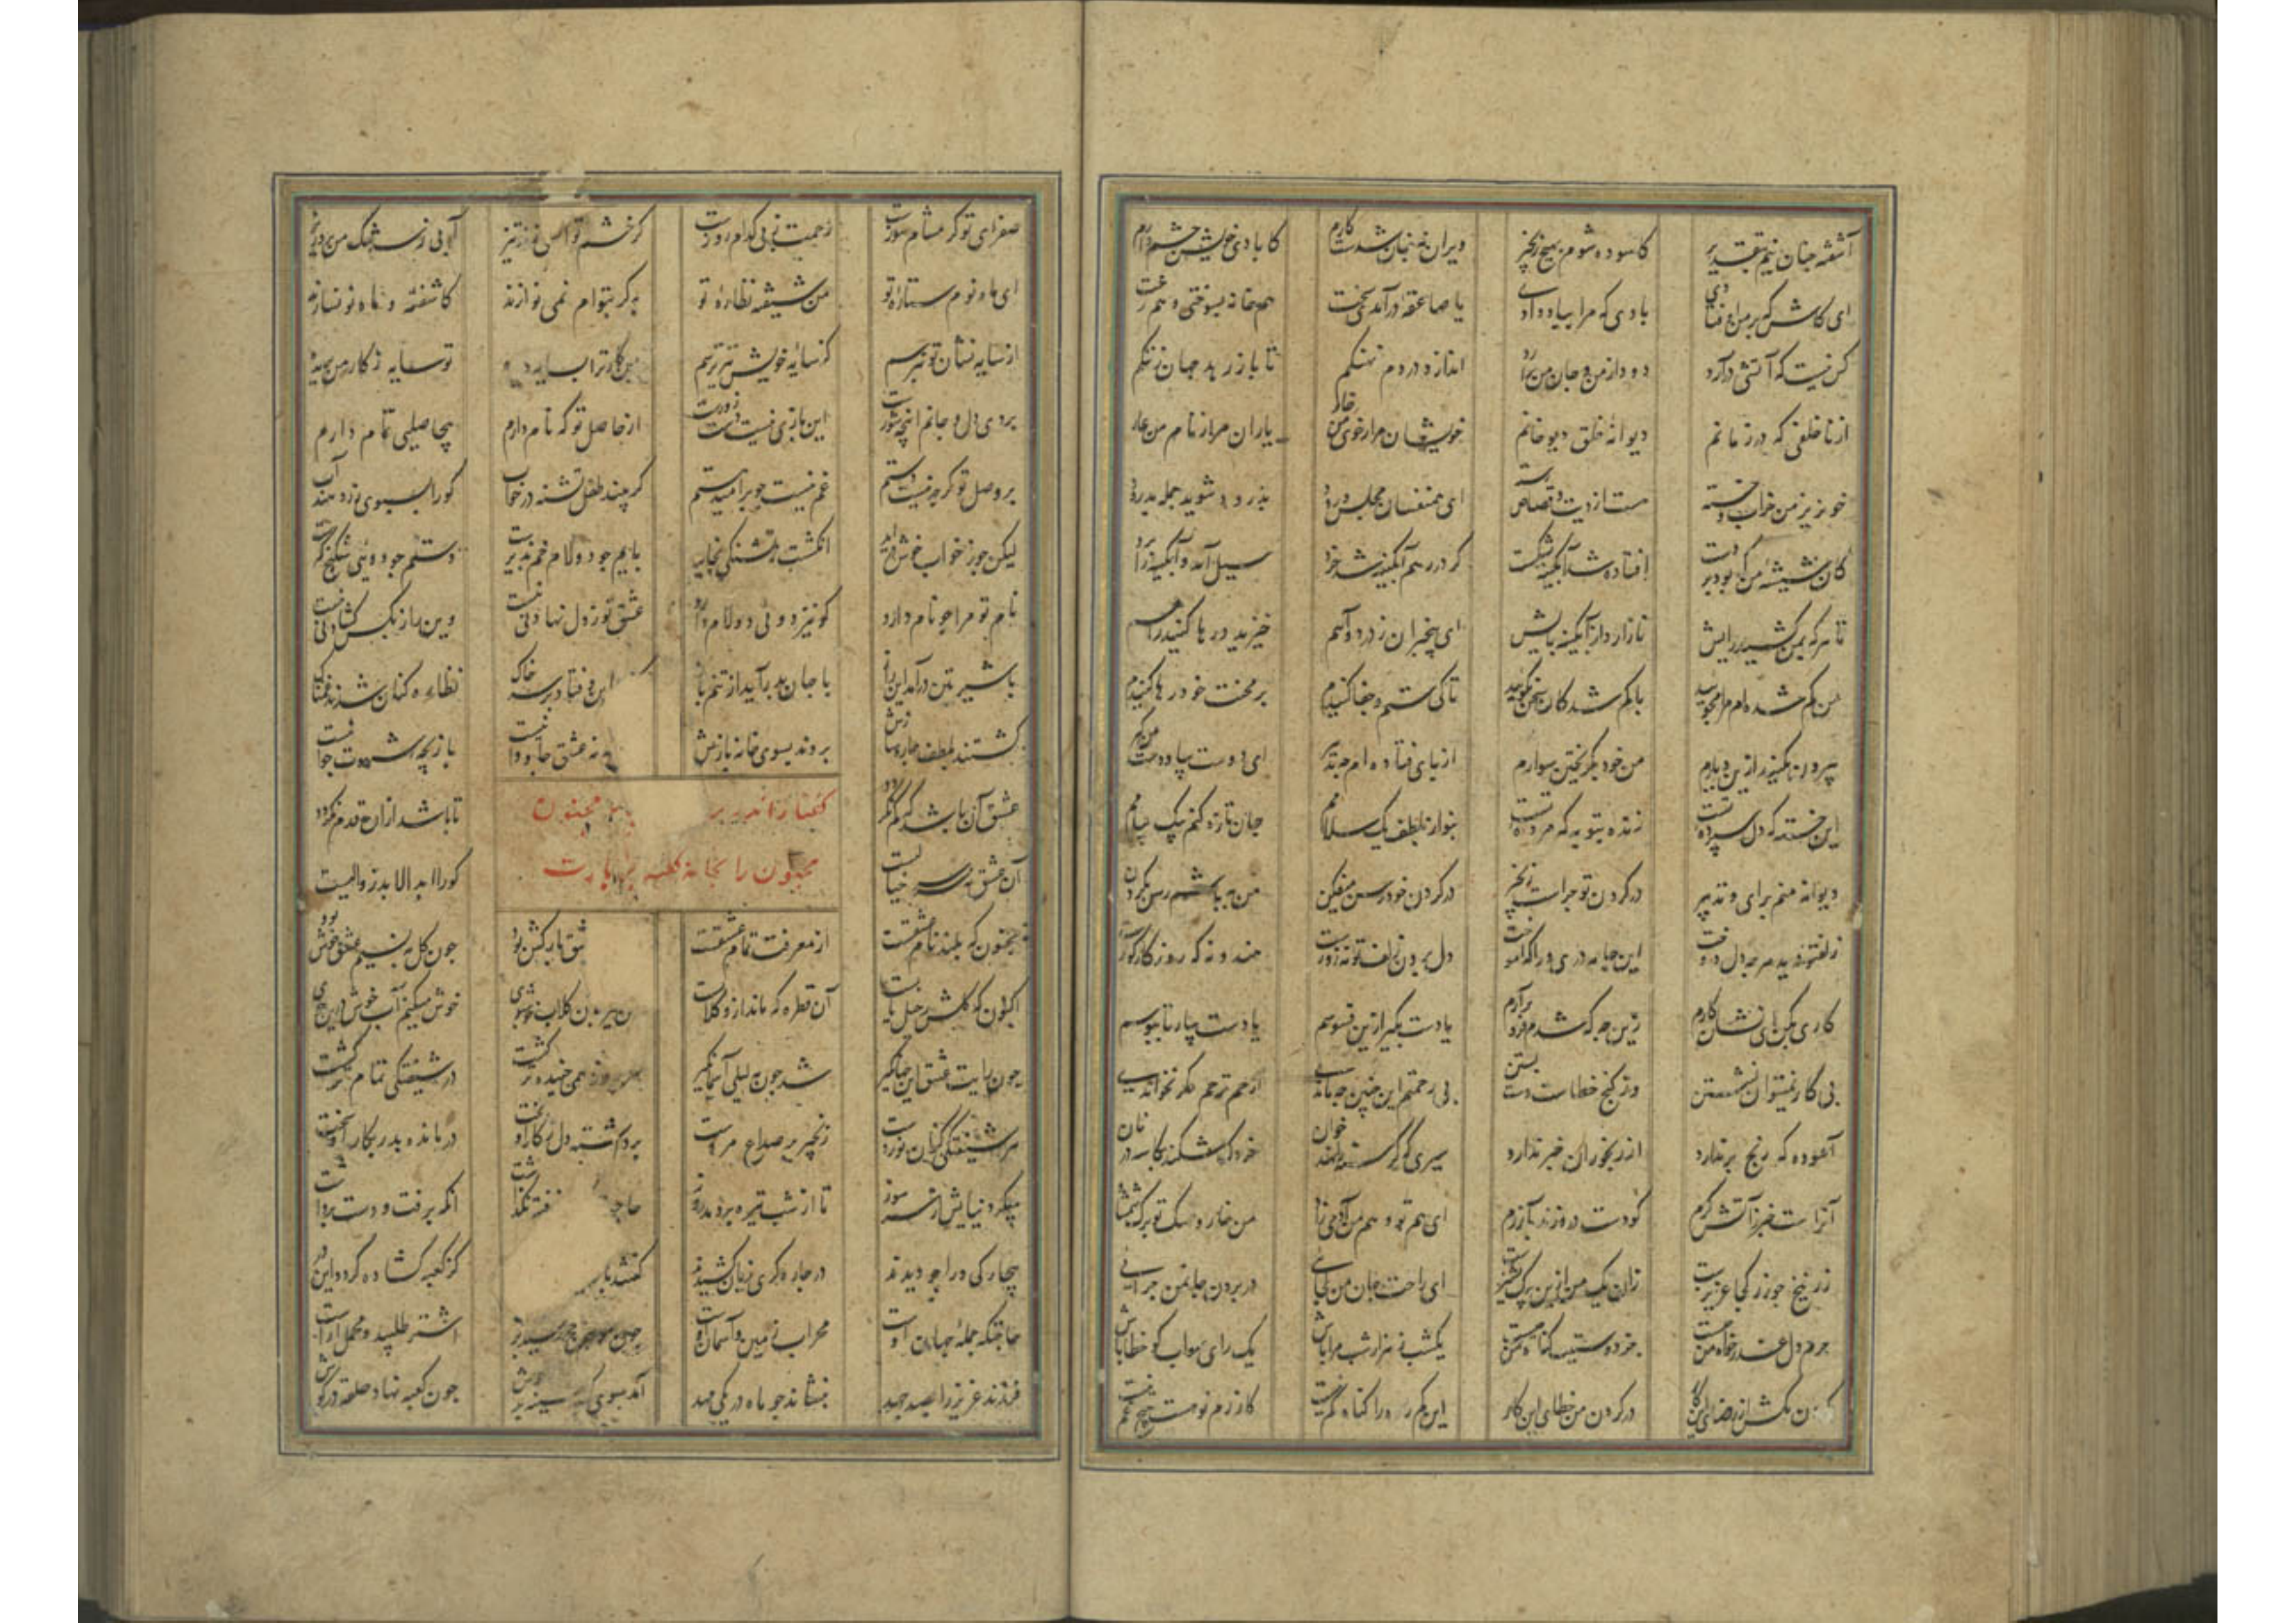 آشفته چنان نیم بتقدیر کاسوده شوم بهیچ زنجیر ویران نه چنان شدست کارم کابادی خویش چشم دارم
ای کاش که بر من اوفتادی بادی که مرا بباد دادی یا صاعقه درآمدی سخت هم خانه بسوختی و هم رخت
کس نیست که آتشی درآرد دود از من و جان من برآرد اندازد در دم نهنگم تا باز رهد جهان ز ننگم
از ناخلفی که در زمانم دیوانه خلق و دیو خانم خویشان مرا ز خوی من خار یاران مرا ز نام من عار
خونریز من خراب و خسته هست از دیت و قصاص رسته ای همنفسان مجلس و رود بدرود شوید جمله بدرود
کان شیشه من که بود بر دست افتاد شد آبگینه بشکست گر در رهم آبگینه شد خرد سیل آمد و آبگینه را برد
تا هر که بمن کشید رایش نازارد از آبگینه پایش ای بیخبران ز درد و آهم خیزید و رها کنید راهم
من گم شده ام مرا مجویید با گم شدگان سخن مگویید تا کی ستم و جفا کنیدم بر محنت خود رها کنیدم
بیرون مکنید ازین دیارم من خود بگریختن سوارم از پای فتاده ام چه تدبیر ای دوست بیا و دست من گیر
این خسته که دل سپرده تست زنده بتو به که مرده تست بنواز بلطف یک سلامم جان تازه کنم بیک پیامم
دیوانه منم برای و تدبیر در گردن تو چراست زنجیر در گردن خود رسن میفکن من به باشم رسن بگردن
زلفت درید هرچه دل دوخت این جامه دری ورا که آموخت دل بردن زلف تو نه زورست هندو نه که روزگار کورست
کاری بکن ای نشان کارم زین چه که شدم فرو برآرم یا دست بگیر ازین فسوسم یا دست بیار تا ببوسم
بی کار نمیتوان نشستن وز کنج خطاست دست بستن بی رحمتم این چنین چه مانی ارحم ترحم مگر نخوانی
آسوده که رنج بر ندارد از رنجوران خبر ندارد سیری که گرسنه نهد خوان خردک شکند بکاسه در نان
آنراست خبر ز آتش گرم کو دست درو زند بآزرم ای هم تو و هم من آدمی زاد من خار و تو برگ شمشاد
زرنیخ چو زر کجا عزیزست زان یک من ازین بیک پشیزست ای راحت جان من کجایی در بردن جان من چرایی
جرم دل عذر خواه من چیست جز دوستیت گناه من چیست یکشب ز هزار شب مرا باش یک رای صواب کو خطا باش
گردن مکش از رضای این کار در گردن من خطای این کار این کم زده را هیچ غم نیست
صفرای تو گر مشام سوزست زحمت ز پی کدام روزست گر خشم تو آتشی زند تیز آبی ز سرشک من برو ریز
ای ماه نوم ستاره تو من شیفته نظاره تو به گر بتوام نمی نوازند کاشفته و ماه نو نسازند
از سایه نشان تو نپرسم کز سایه خویشتن بترسم من کار ترا بسایه دیده تو سایه ز کار من بریده
بردی دل و جانم این چه شورست این بازی نیست دست زورست از حاصل تو که نام دارم بی حاصلی تمام دارم
بر وصل تو گرچه نیست دستم غم نیست چو بر امید هستم گر بیند طفل تشنه در خواب کورا بسبوی زر دهند آب
لیکن چو ز خواب خوش برآید انگشت ز تشنگی بخاید پایم چو دو لام خم پذیرست دستم چو دو یی شکنج گیرست
نام تو مرا چو نام دارد کو نیز دو یی دو لام دارد عشق تو ز دل نهادنی نیست وین راز بکس گشادنی نیست
با شیر بتن درآمد این راز با جان بدر آید از تنم باز این و فتاد بر سر خاک نظاره کنان شدند غمناک
گشتند بلطف چاره سازش بردند بسوی خانه بازش نه عشق جاودانیست بازیچه شهوت جوانیست
عشق آن باشد که کم نگردد تا باشد ازان قدم نگردد
آن عشق نه سرسری خیالست کورا ابد الابد زوالست
گفتار اندر بردن مجنون
مجنون را بخانه کعبه بزیارت
مجنون که بلند نام عشقست از معرفت تمام عشقست عشق بارکش بود چون گل به نسیم عشق خوش بود
اکنون که گلش رحیل یابست آن قطره که ماند ازو گلابست من نیز بدان گلاب خوشبوی خوش میکنم آب خوش درین جوی
چون رایت عشق آن جهانگیر شد چون مه لیلی آسمان گیر هر روز خمیده تر گشت در شیفتگی تمام تر گشت
هر شیفتگی کزان نوردست زنجیر بر صداع مردست برداشته دل ز کار او بخت درمانده پدر بکار او سخت
میکرد نیایش از سر سوز تا از شب تیره بردمد روز نرفته نگذاشت برفت و دست برداشت
بیچارگی ورا چو دیدند در چاره گری زبان کشیدند گفتند کز کعبه گشاده گردد این در
حاجتگه جمله جهان اوست محراب زمین و آسمان اوست چون موسم حج رسید اشتر طلبید و محمل آراست
فرزند عزیز را بصد جهد بنشاند چو ماه در یکی مهد آمد بسوی کعبه سینه پر جوش چون کعبه نهاد حلقه در گوش